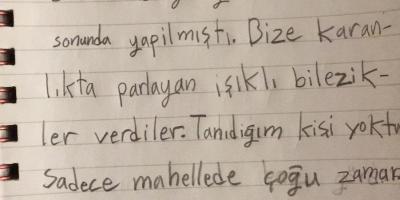 sonunda yapılmıştı. Bize karan-
lıkta parlayan ışıklı bilezik-
ler verdiler. Tanıdığım kişi yoktu
Sadece mahellede çoğu zaman